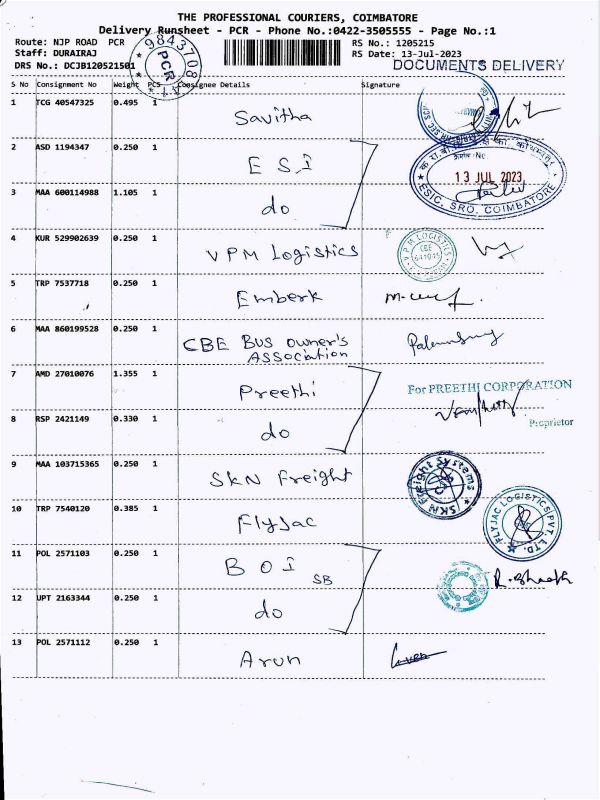 THE PROFESSIONAL COURIERS, COIMBATORE
Delivery Runsheet - PCR - Phone No.:0422-3505555 - Page No.:1
Route: NJP ROAD PCR
RS No.: 1205215
Staff: DURAIRAJ
RS Date: 13-Jul-2023
DRS No.: DCJB120521501
DOCUMENTS DELIVERY
PCR
S No Consignment No Weight PCS Consignee Details Signature
1 TCG 40547325 0.495 1 Savitha
2 ASD 1194347 0.250 1 ESI
13 JUL 2023
ESIC, SRO, COIMBATORE
3 MAA 600114988 1.105 1 do
4 KUR 529902639 0.250 1 VPM Logistics
VPM LOGISTICS
CBE
5 TRP 7537718 0.250 1 Emberk
6 MAA 860199528 0.250 1 CBE BUS Owner's
ASSOCIATION
7 AMD 27010076 1.355 1 Preethi
For PREETHI CORPORATION
8 RSP 2421149 0.330 1 do
Proprietor
9 MAA 103715365 0.250 1 SKN Freight
SKN Freight Systems
10 TRP 7540120 0.385 1 FlyJac
FLYJAC LOGISTICS PVT. LTD.
11 POL 2571103 0.250 1 BOI
SB
12 UPT 2163344 0.250 1 do
13 POL 2571112 0.250 1 Arun